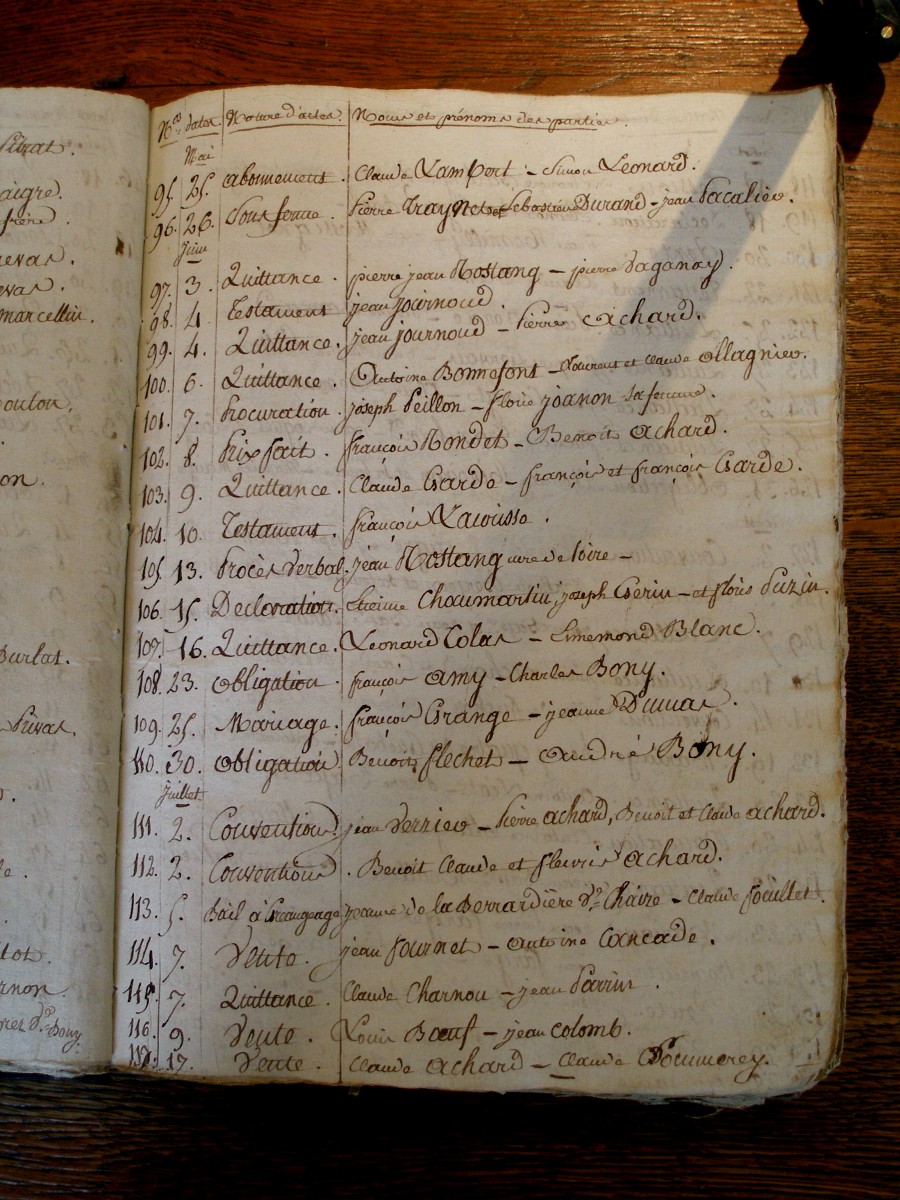 Nos dates Nature d'actes. Noms et prénoms des parties
Mai
95. 25. abonnement. Claude Lampert - Simon Leonard.
96. 26. Sous ferme. Pierre Traynet et Sebastien Durand - jean Pacalier.
Juin
97. 3. Quittance. pierre jean Rostang - pierre Daganay.
98. 4. Testament jean journoud.
99. 4. Quittance. jean journoud - Pierre achard.
100. 6. Quittance. Antoine Bonnefont - Laurent et Claude Ollagnier.
101. 7. Procuration. joseph Peillon - florie joanon sa femme.
102. 8. Prix fait. françois Rondet - Benoit achard.
103. 9. Quittance. Claude Garde - françois et françois Garde.
104. 10. Testament. françois
105. 13. Procès verbal. jean Rostang cure de loire -
106. 15. Declaration. Etienne Chaumartin, joseph Gerin - et floris Puzin.
107. 16. Quittance. Leonard Colas - Blanc.
108. 23. obligation. françois Amy - Charles Bony.
109. 25. Mariage. françois Grange - jeanne Dumas.
110. 30. obligation Benoit flechet - André Bony.
juillet
111. 2. Convention. jean Verrier - Pierre achard, Benoit et Claude achard.
112. 2. Convention. Benoit Claude et fleuris achard.
113. 5. Bail à Grangeage jeanne de la Berrardière Ve. Chaize - Claude fouillet.
114. 7. Vente. jean fournet - Antoine Cancade.
115. 7. Quittance. Claude Charnou - jean Parrin.
116. 9. Vente. Louis Bœuf - jean Colomb.
117. 17. Vente. Claude achard - Claude
marcellin.